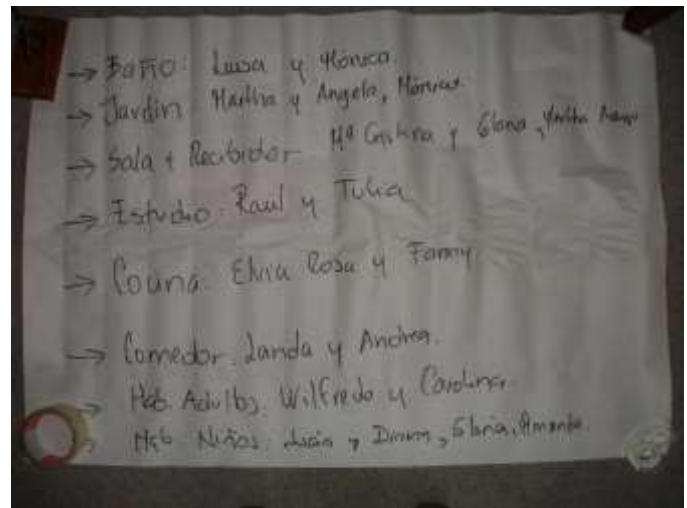 → Baño: Luisa y Mónica.
→ Jardin Martha y Angela, Mónica
→ Sala + Recibidor Mª Cristina y Gloria, Martha
→ Estudio: Raul y Tulia
→ Cocina: Elvia Rosa y Fanny
→ Comedor: Landa y Andrea.
→ Hab. Adultos: Wilfredo y Carolina.
→ Hab Niños: y Gloria, Amanda.